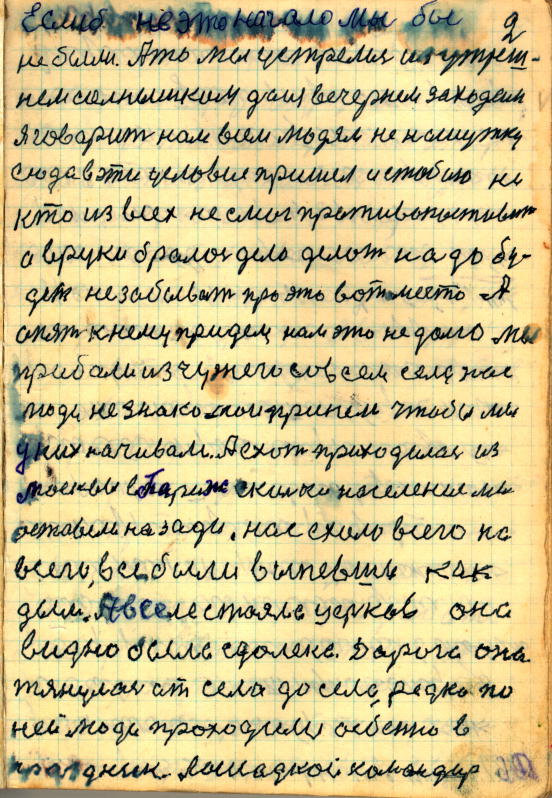 Еслиб не это начало мы бы 2
не были. А то мы устремля из утреш-
нем солнышком для вечернем заходам
Я говарит нам всем людям не на шутку
сюда в эти условие пришел и стобою ни
кто из всех не смог противопоставит
а в руки бралос дело делот надо бу-
дет не забыват про это вот место А
опят к нему придем нам это не долго мы
прибали из чужего совсем села нас
люди не знако принем чтобы мы
у них начивали. А схот приходилас из
москвы в Париж сколько население мы
оставем на зади. нас схало всего на
всего, все были выпевшы как
дым. А в селе стояла церков она
видно была сдолека. Дарога она
тянулас от села до села, редко по
ней люди проходили осбенно в
праздник. Лошадкой командир